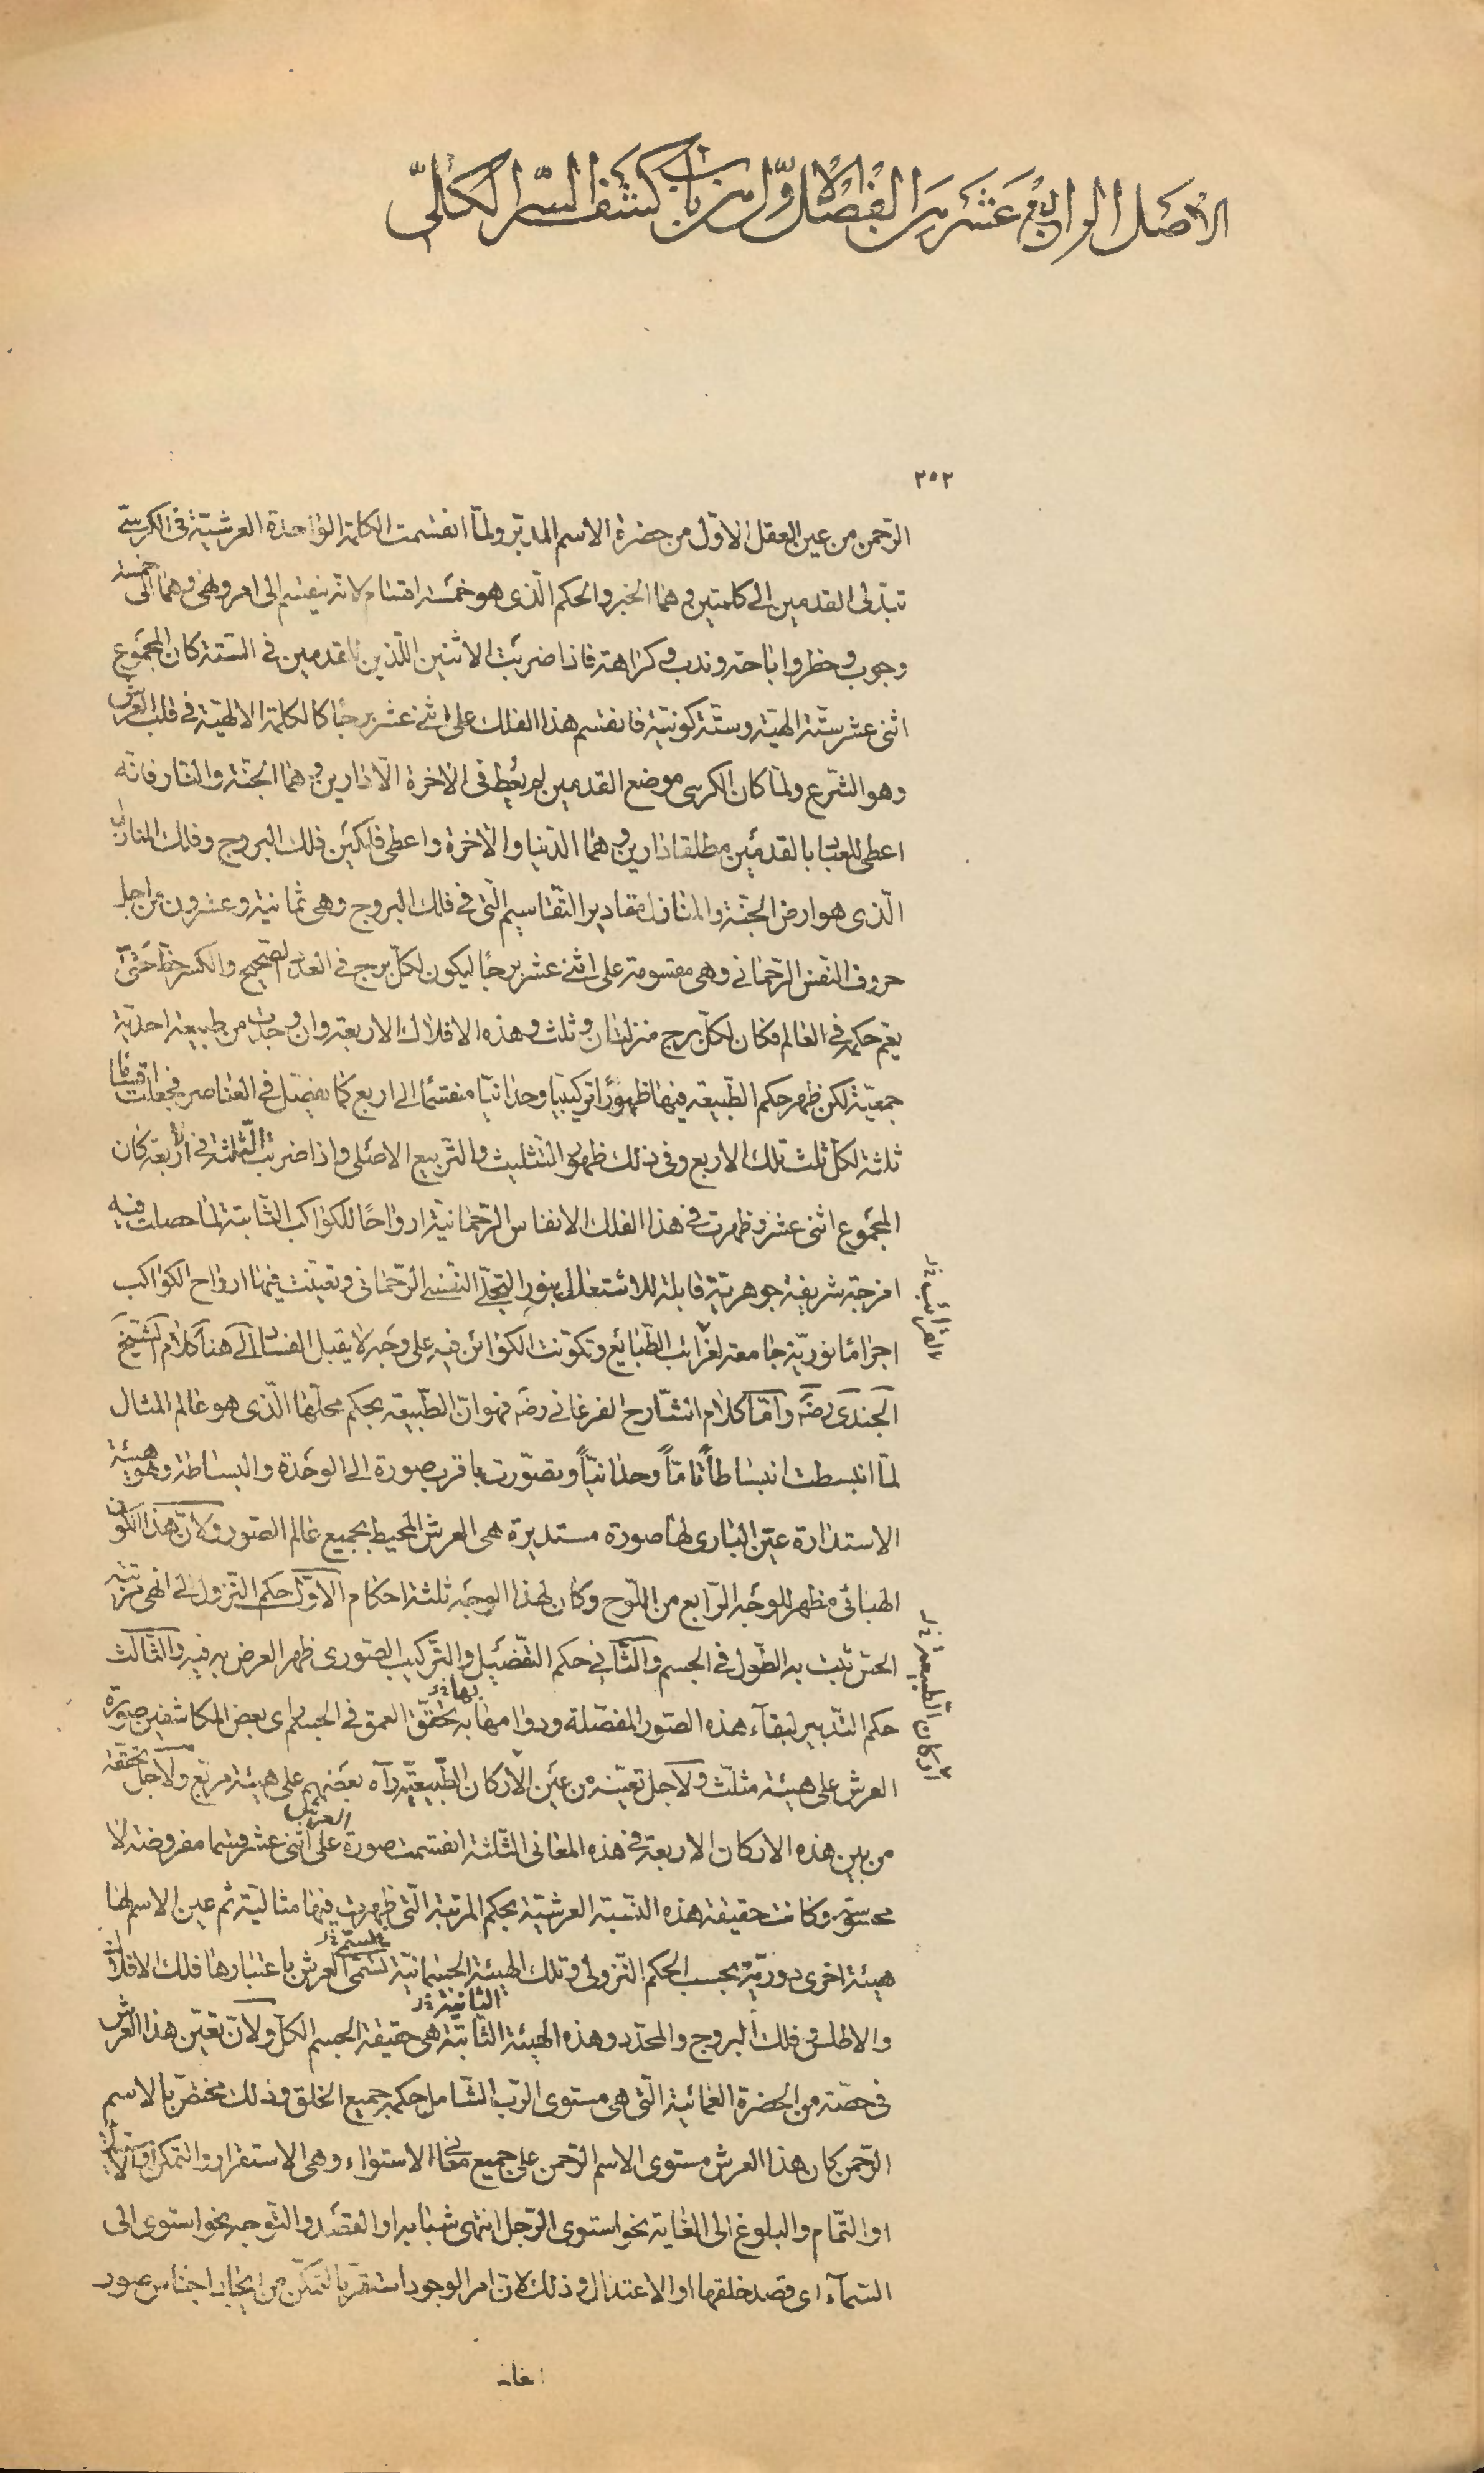 الأصل الرابع عشر من الفصل الأوّل من باب كشف السّر الكلّى
٢٥٢
الرّحمن من عين العقل الاوّل من حضرة الاسم المدبّر ولمّا انقسمت الكلمة الواحدة العرشيّة فى الكرسىّ
بتدلى القدمين الى كلمتين وهما الخبر والحكم الّذى هو خمسة اقسام لانّه ينقسم الى امر ونهى وهما الى خمسة
وجوب وحظر واباحة وندب وكراهة فاذا ضربت الاثنين اللّذين للقدمين فى الستّة كان المجموع
اثنى عشر ستّة الهيّة وستّة كونيّة فانقسم هذا الفلك على اثنى عشر برجًا كالكلمة الالهيّة فى قلب العرش
وهو الشّرع ولمّا كان الكرسى موضع القدمين لم يعط فى الاخرة الّا دارين وهما الجنّة والنّار فانّه
اعطى للعباد بالقدمين مطلقا دارين وهما الدّنيا والآخرة واعطى فلكين فلك البروج وفلك المنازل
الّذى هو ارض الجنّة والمنازل مقادير التّقاسيم الّتى فى فلك البروج وهى ثمانية وعشرون من اجل
حروف النّفس الرّحمانى وهى مقسومة على اثنى عشر برجًا ليكون لكلّ برج فى العدد الصّحيح والكسر حظّ حتّى
يعم حكمه فى العالم فكان لكلّ برج منزلتان وثلث وهذه الافلاك الاربعة وان وجدت من طبيعة احديّة
جمعيّة لكن ظهر حكم الطّبيعة فيها ظهورًا تركيبيا وحدانيّا منقسمًا الى اربع كما يفصّل فى العناصر فجعلت اقسامًا
ثلثة لكلّ ثلث تلك الاربع وفى ذلك ظهور التّثليث والتّربيع الاصلى واذا ضربت الثّلثة فى الاربعة كان
المجموع اثنى عشر وظهرت فى هذا الفلك الانفاس الرّحمانيّة ارواحًا للكواكب الثّابتة لما حصلت فيه
امزجة شريفة جوهريّة قابلة للاشتعال بنور التّجلّى النّفسى الرّحمانى وتعيّنت فيها ارواح الكواكب
اجرامًا نوريّة جامعة لغرائب الطّبائع وتكوّنت الكوائن فيه على وجه لا يقبل الفساد الى هنا كلام الشّيخ
الجندى رضه وامّا كلام الشّارح الفرغانى رضه فهو انّ الطّبيعة بحكم محلّها الّذى هو عالم المثال
لمّا انبسطت انبساطاً تامّاً وحدانيّاً وتصوّرت باقرب صورة الى الوحدة والبساطة وهو هيئة
الاستدارة عيّن البارى لها صورة مستديرة هى العرش المحيط بجميع عالم الصّور ولانّ هذا الكون
الهبائى مظهر للوجه الرّابع من اللّوح وكان لهذا الوجه ثلثة احكام الاوّل حكم التّنزول الى انهى مرتبة
الحسّ ثبت به الطّول فى الجسم والثّانى حكم التّفصيل والتّركيب الصّورى ظهر العرض به فيه والثّالث
حكم التّدبير لبقآء هذه الصّور المفصّلة ودوامها به بها خر تحقّق العمق فى الجسم راى بعض المكاشفين صورة
العرش على هيئة مثلّث ولاجل تعيّنه من عين الأركان الطّبيعيّة رآه بعضهم على هيئة مربّع ولاجل تحقّقه
من بين هذه الاركان الاربعة فى هذه المعانى الثّلثة انقسمت صورة العرش على اثنى عشر قسما مفروضة لا
محسوسة وكانت حقيقة هذه النّسبة العرشيّة بحكم المرتبة الّتى ظهرت فيها مثاليّة ثم عين الاسم لها
هيئة اخرى دوريّة بحسب الحكم التّنزولى وتلك الهيئة الجسمانيّة تسمّى العرش باعتبارها فلك الافلاك
والاطلس وفلك البروج والمحدّد وهذه الهيئة الثّابتة الثانية خر هى حقيقة الجسم الكلّ ولانّ تعيّن هذا العرش
فى حصّة من الحضرة العمائيّة الّتى هى مستوى الرّب الشّامل حكمه جميع الخلق وذلك مختصّ بالاسم
الرّحمن كان هذا العرش مستوى الاسم الرّحمن على جميع معانى الاستواء وهى الاستقرار والتمكن او الاستيلاء
او التّمام والبلوغ الى الغاية نحو استوى الرّجل انتهى شبابه او القصد والتّوجه نحو استوى الى
السّمآء اى قصد خلقها او الاعتدال وذلك لانّ امر الوجود استقرّ بالتمكّن من ايجاد اجناس صور
اركان الطّبيعة خر